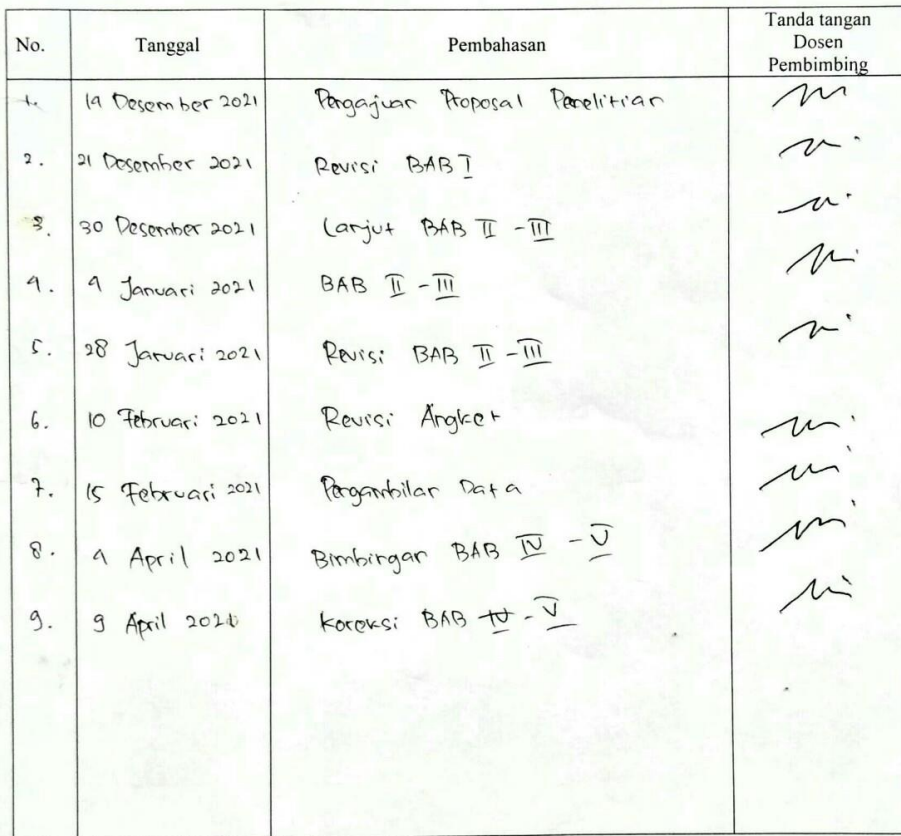 No. Tanggal Pembahasan Tanda tangan
Dosen
Pembimbing
1. 14 Desember 2021 Pengajuan Proposal Penelitian
2. 21 Desember 2021 Revisi BAB I
3. 30 Desember 2021 Lanjut BAB II - III
4. 4 Januari 2021 BAB II - III
5. 28 Januari 2021 Revisi BAB II - III
6. 10 Februari 2021 Revisi Angket
7. 15 Februari 2021 Pengambilan Data
8. 4 April 2021 Bimbingan BAB IV - V
9. 9 April 2021 Koreksi BAB IV - V